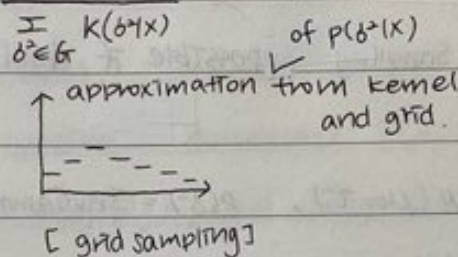 Σ K(σ²|X)
σ²∈G
of p(σ²|X)
approximation from kernel
and grid.
[grid sampling]